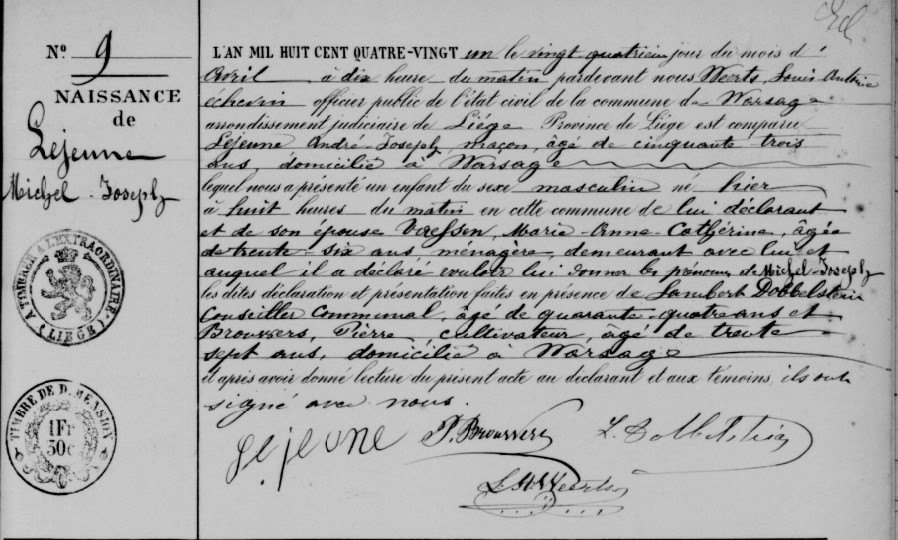 N° 9
NAISSANCE
de
Lejeune
Michel-Joseph
A TIMBRER A L'EXTRAORDINAIRE
(LIÉGE)
TIMBRE DE DIMENSION
1Fr
50c
L'AN MIL HUIT CENT QUATRE-VINGT un le vingt quatrième jour du mois d'
Avril à dix heure du matin pardevant nous Weerts, Louis Antoine
échevin officier public de l'état civil de la commune de Warsage
arrondissement judiciaire de Liége Province de Liége est comparu
Lejeune André-Joseph, maçon, âgé de cinquante trois
ans domicilié à Warsage
lequel nous a présenté un enfant du sexe masculin né hier
à huit heures du matin en cette commune de lui déclarant
et de son épouse Vaessen, Marie-Anne-Cathérine, âgée
de trente-six ans, ménagère, demeurant avec lui et
auquel il a déclaré vouloir lui donner les prénoms de Michel-Joseph
les dites déclaration et présentation faites en présence de Lambert Dobbelstein
Conseiller Communal, âgé de quarante-quatre ans et
Brouwers, Pierre, cultivateur, âgé de trente
sept ans, domicilié à Warsage
et après avoir donné lecture du présent acte au déclarant et aux témoins, ils ont
signé avec nous.
Lejeune P. Brouwers L. Dobbelstein
L. A. Weerts